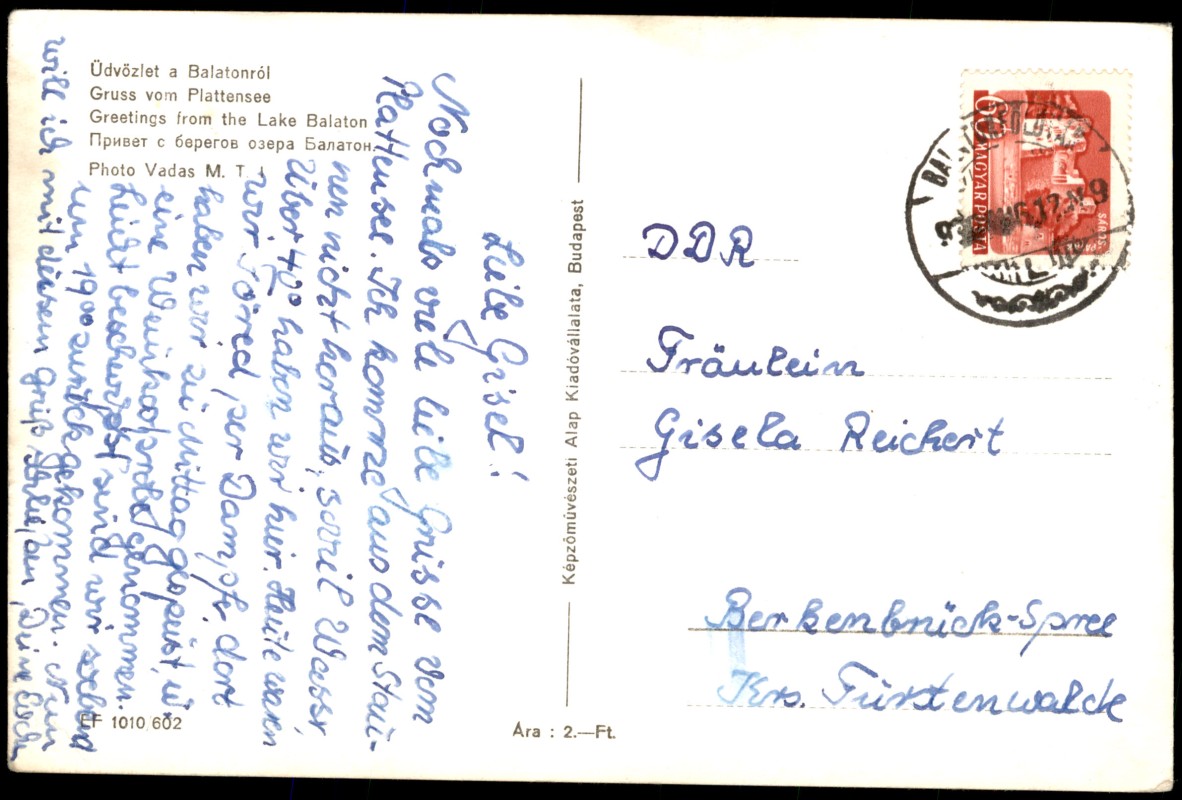 Üdvözlet a Balatonról
Gruss vom Plattensee
Greetings from the Lake Balaton
Привет с берегов озера Балатон.
Photo Vadas M. T. I.
Liebe Gisel!
Nochmals viele liebe Grüsse vom
Plattensee. Ich komme aus dem Stau-
nen nicht heraus, soviel Wasser.
Über 40° haben wir hier. Heute waren
wir per Dampfer dort
haben wir zu Mittag gespeist, u.
eine Weinkostprobe genommen.
Leicht beschwipst sind wir
um 19⁰⁰ zurückgekommen. Nun
will ich mit diesem Gruß Dein
FF 1010/602
Ára : 2.—Ft.
Képzőművészeti Alap Kiadóvállalata, Budapest
60
MAGYAR POSTA
DDR
Fräulein
Gisela Reichert
Berkenbrück-Spree
Krs. Fürstenwalde